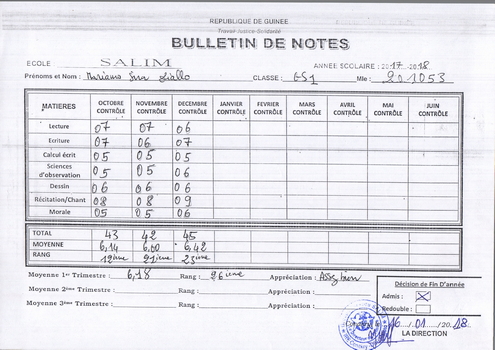 REPUBLIQUE DE GUINEE
Travail-Justice-Solidarité
BULLETIN DE NOTES
ECOLE SALIM ANNÉE SCOLAIRE : 2017 - 2018
Prénoms et Nom : Mariama Diallo CLASSE : Mle : 201053
MATIERES OCTOBRE CONTRÔLE NOVEMBRE CONTRÔLE DECEMBRE CONTRÔLE JANVIER CONTRÔLE FEVRIER CONTRÔLE MARS CONTRÔLE AVRIL CONTRÔLE MAI CONTRÔLE JUIN CONTRÔLE
Lecture 07 07 06
Ecriture 07 06 07
Calcul écrit 05 05 05
Sciences d'observation 05 05 05
Dessin 06 06 06
Récitation/Chant 08 08 09
Morale 05 05 06
TOTAL 43 42 45
MOYENNE 6,14 6,00 6,42
RANG 19ème 21ème 23ème
Moyenne 1er Trimestre : 6,18 Rang : 26ième Appréciation : Assez bien
Moyenne 2ème Trimestre : Rang : Appréciation :
Moyenne 3ème Trimestre : Rang : Appréciation :
Décision de Fin D'année
Admis :
Redouble :
16/01/2018
LA DIRECTION